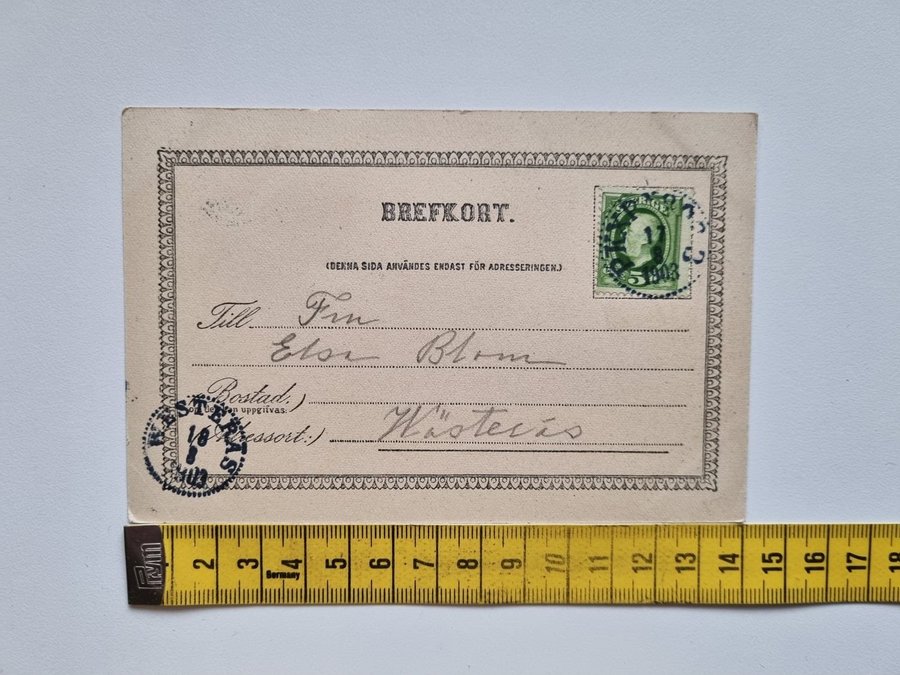 BREFKORT.
(DENNA SIDA ANVÄNDES ENDAST FÖR ADRESSERINGEN.)
SVERIGE
5
17
1903
Till Fru
Elsa Blom
Bostad.)
uppgifvas.
Adressort:) Wästerås
WESTERÅS
18
8
1903
2 3 4 5 6 7 8 9 10 11 12 13 14 15 16 17 18
Germany